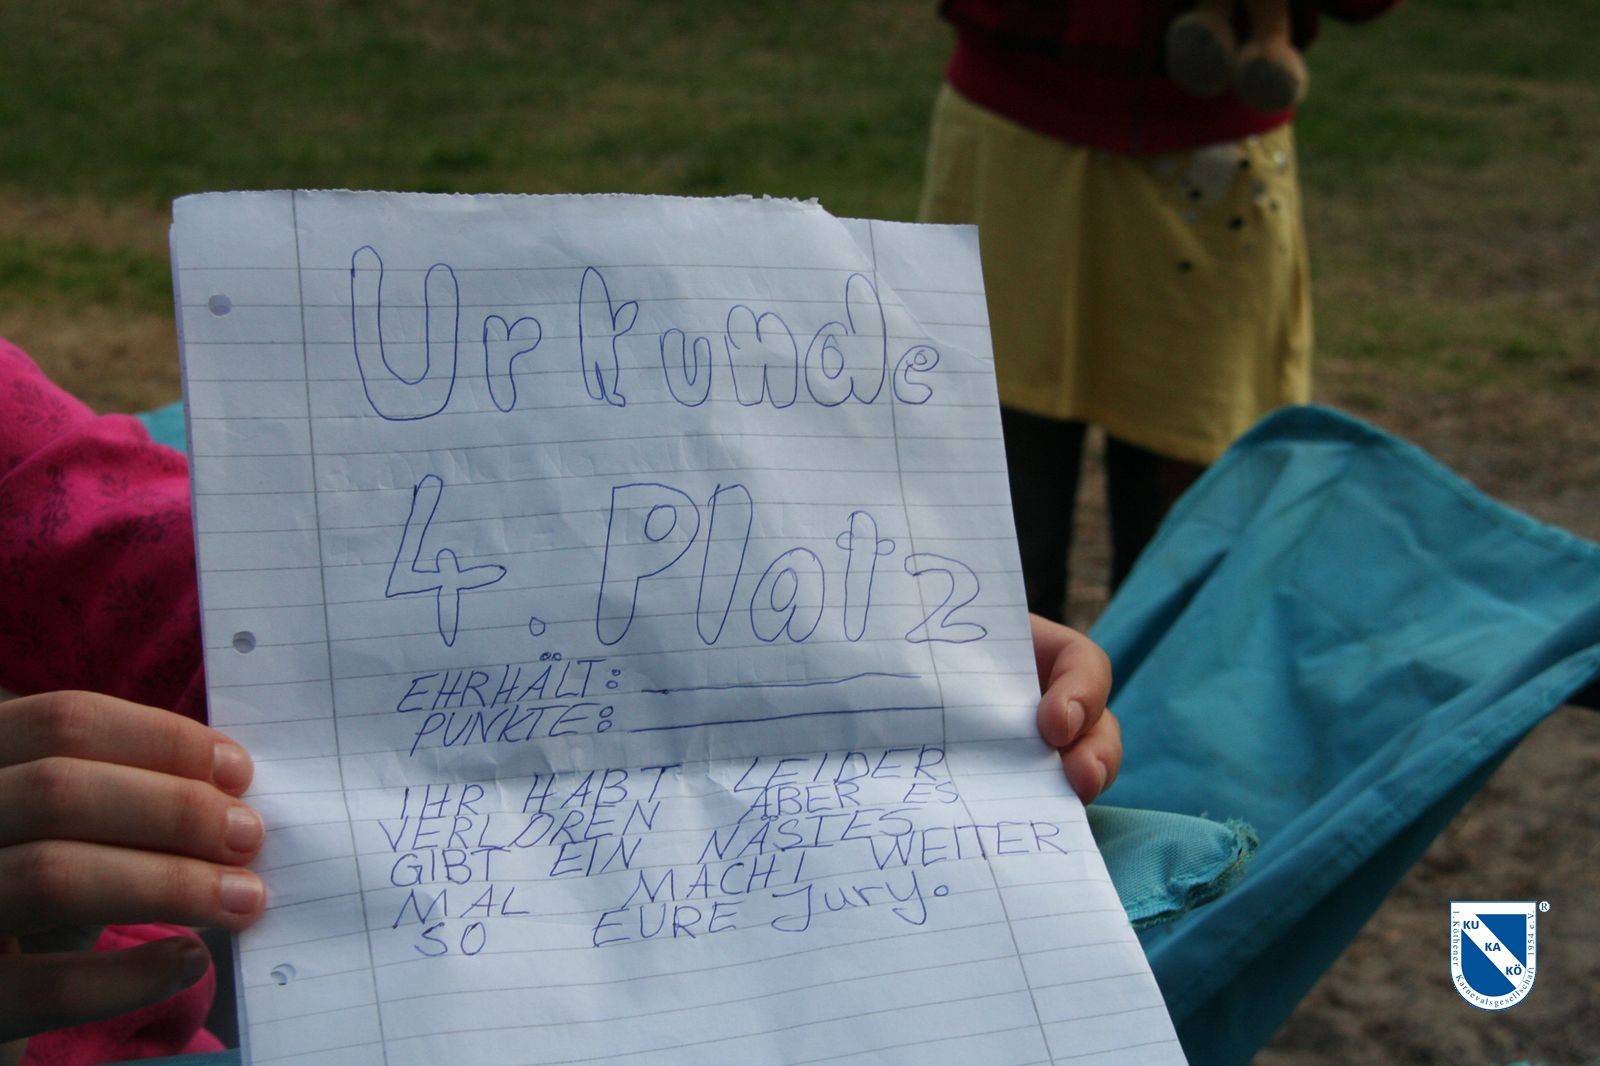 Urkunde
4. Platz
EHRHÄLT:
PUNKTE:
IHR HABT LEIDER
VERLOREN ABER ES
GIBT EIN NÄSTES
MAL MACHT WEITER
SO EURE Jury.
KU
KA
KÖ
1. Köthener Karnevalsgesellschaft 1954 e.V.
®